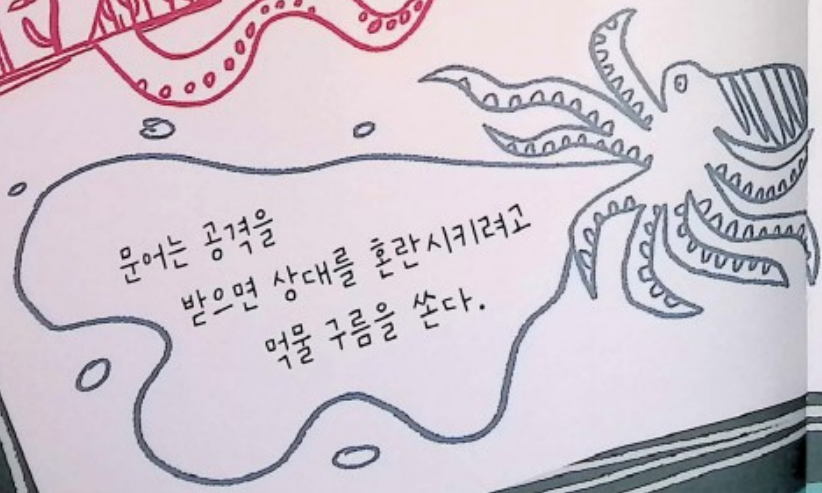 문어는 공격을
받으면 상대를 혼란시키려고
먹물 구름을 쏜다.